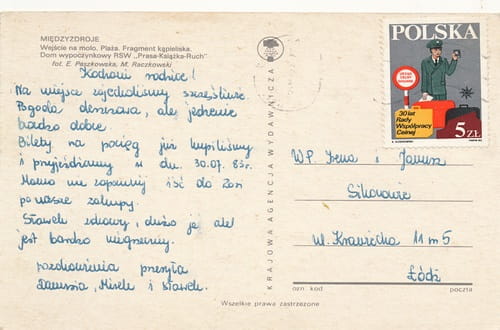 MIĘDZYZDROJE
Wejście na molo. Plaża. Fragment kąpieliska.
Dom wypoczynkowy RSW „Prasa-Książka-Ruch"
fot. E. Paszkowska, M. Raczkowski
Kochani rodzice!
Na miejsce zajechaliśmy szczęśliwie.
Pogoda deszczowa, ale jedzenie
bardzo dobre.
Bilety na pociąg już kupiliśmy
i przyjeżdżamy w dn. 30.07.83r.
Mamo nie zapomnij iść do Zosi
po nasze zakupy.
Sławek zdrowy, dużo je ale
jest bardzo niegrzeczny.
pozdrowienia przesyła
Danusia, Mirek i Sławek.
KRAJOWA AGENCJA WYDAWNICZA
POLSKA
30 lat
Rady
Współpracy
Celnej
5 ZŁ
W.P. Irena i Janusz
Sikorowie
ul. Krawiecka 11 m 5
Łódź
ozn. kod
poczta
Wszelkie prawa zastrzeżone